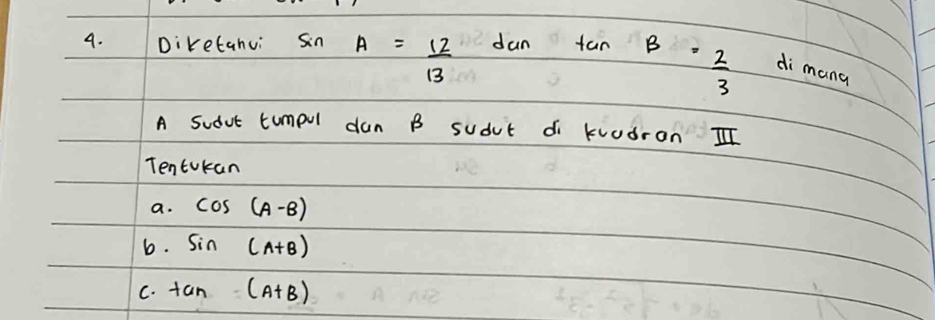 4. Diketahui Sin A = 12/13 dan tan B = 2/3 di mana
A sudut tumpul dan B sudut di kuadran III
Tentukan
a. cos (A-B)
b. Sin (A+B)
c. tan (A+B)